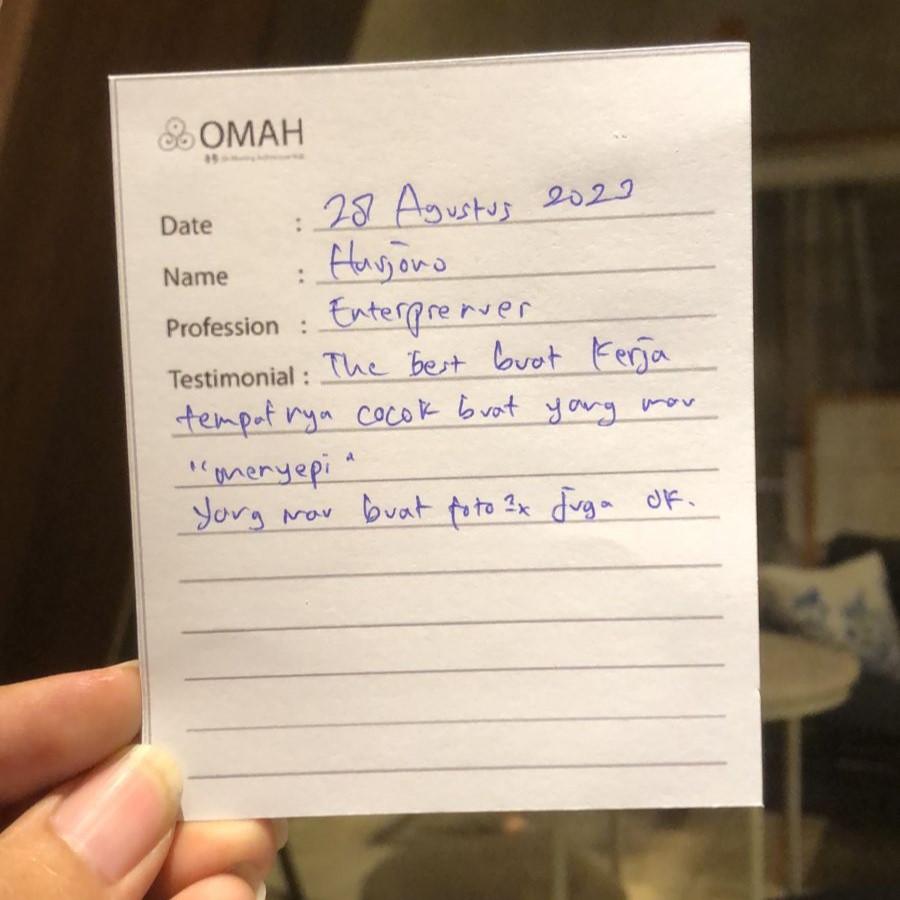 OMAH
Date : 28 Agustus 2023
Name : Harjono
Profession : Enterprenuer
Testimonial : The best buat kerja
tempatnya cocok buat yang mau
"menyepi"
Yang mau buat foto2x juga OK.